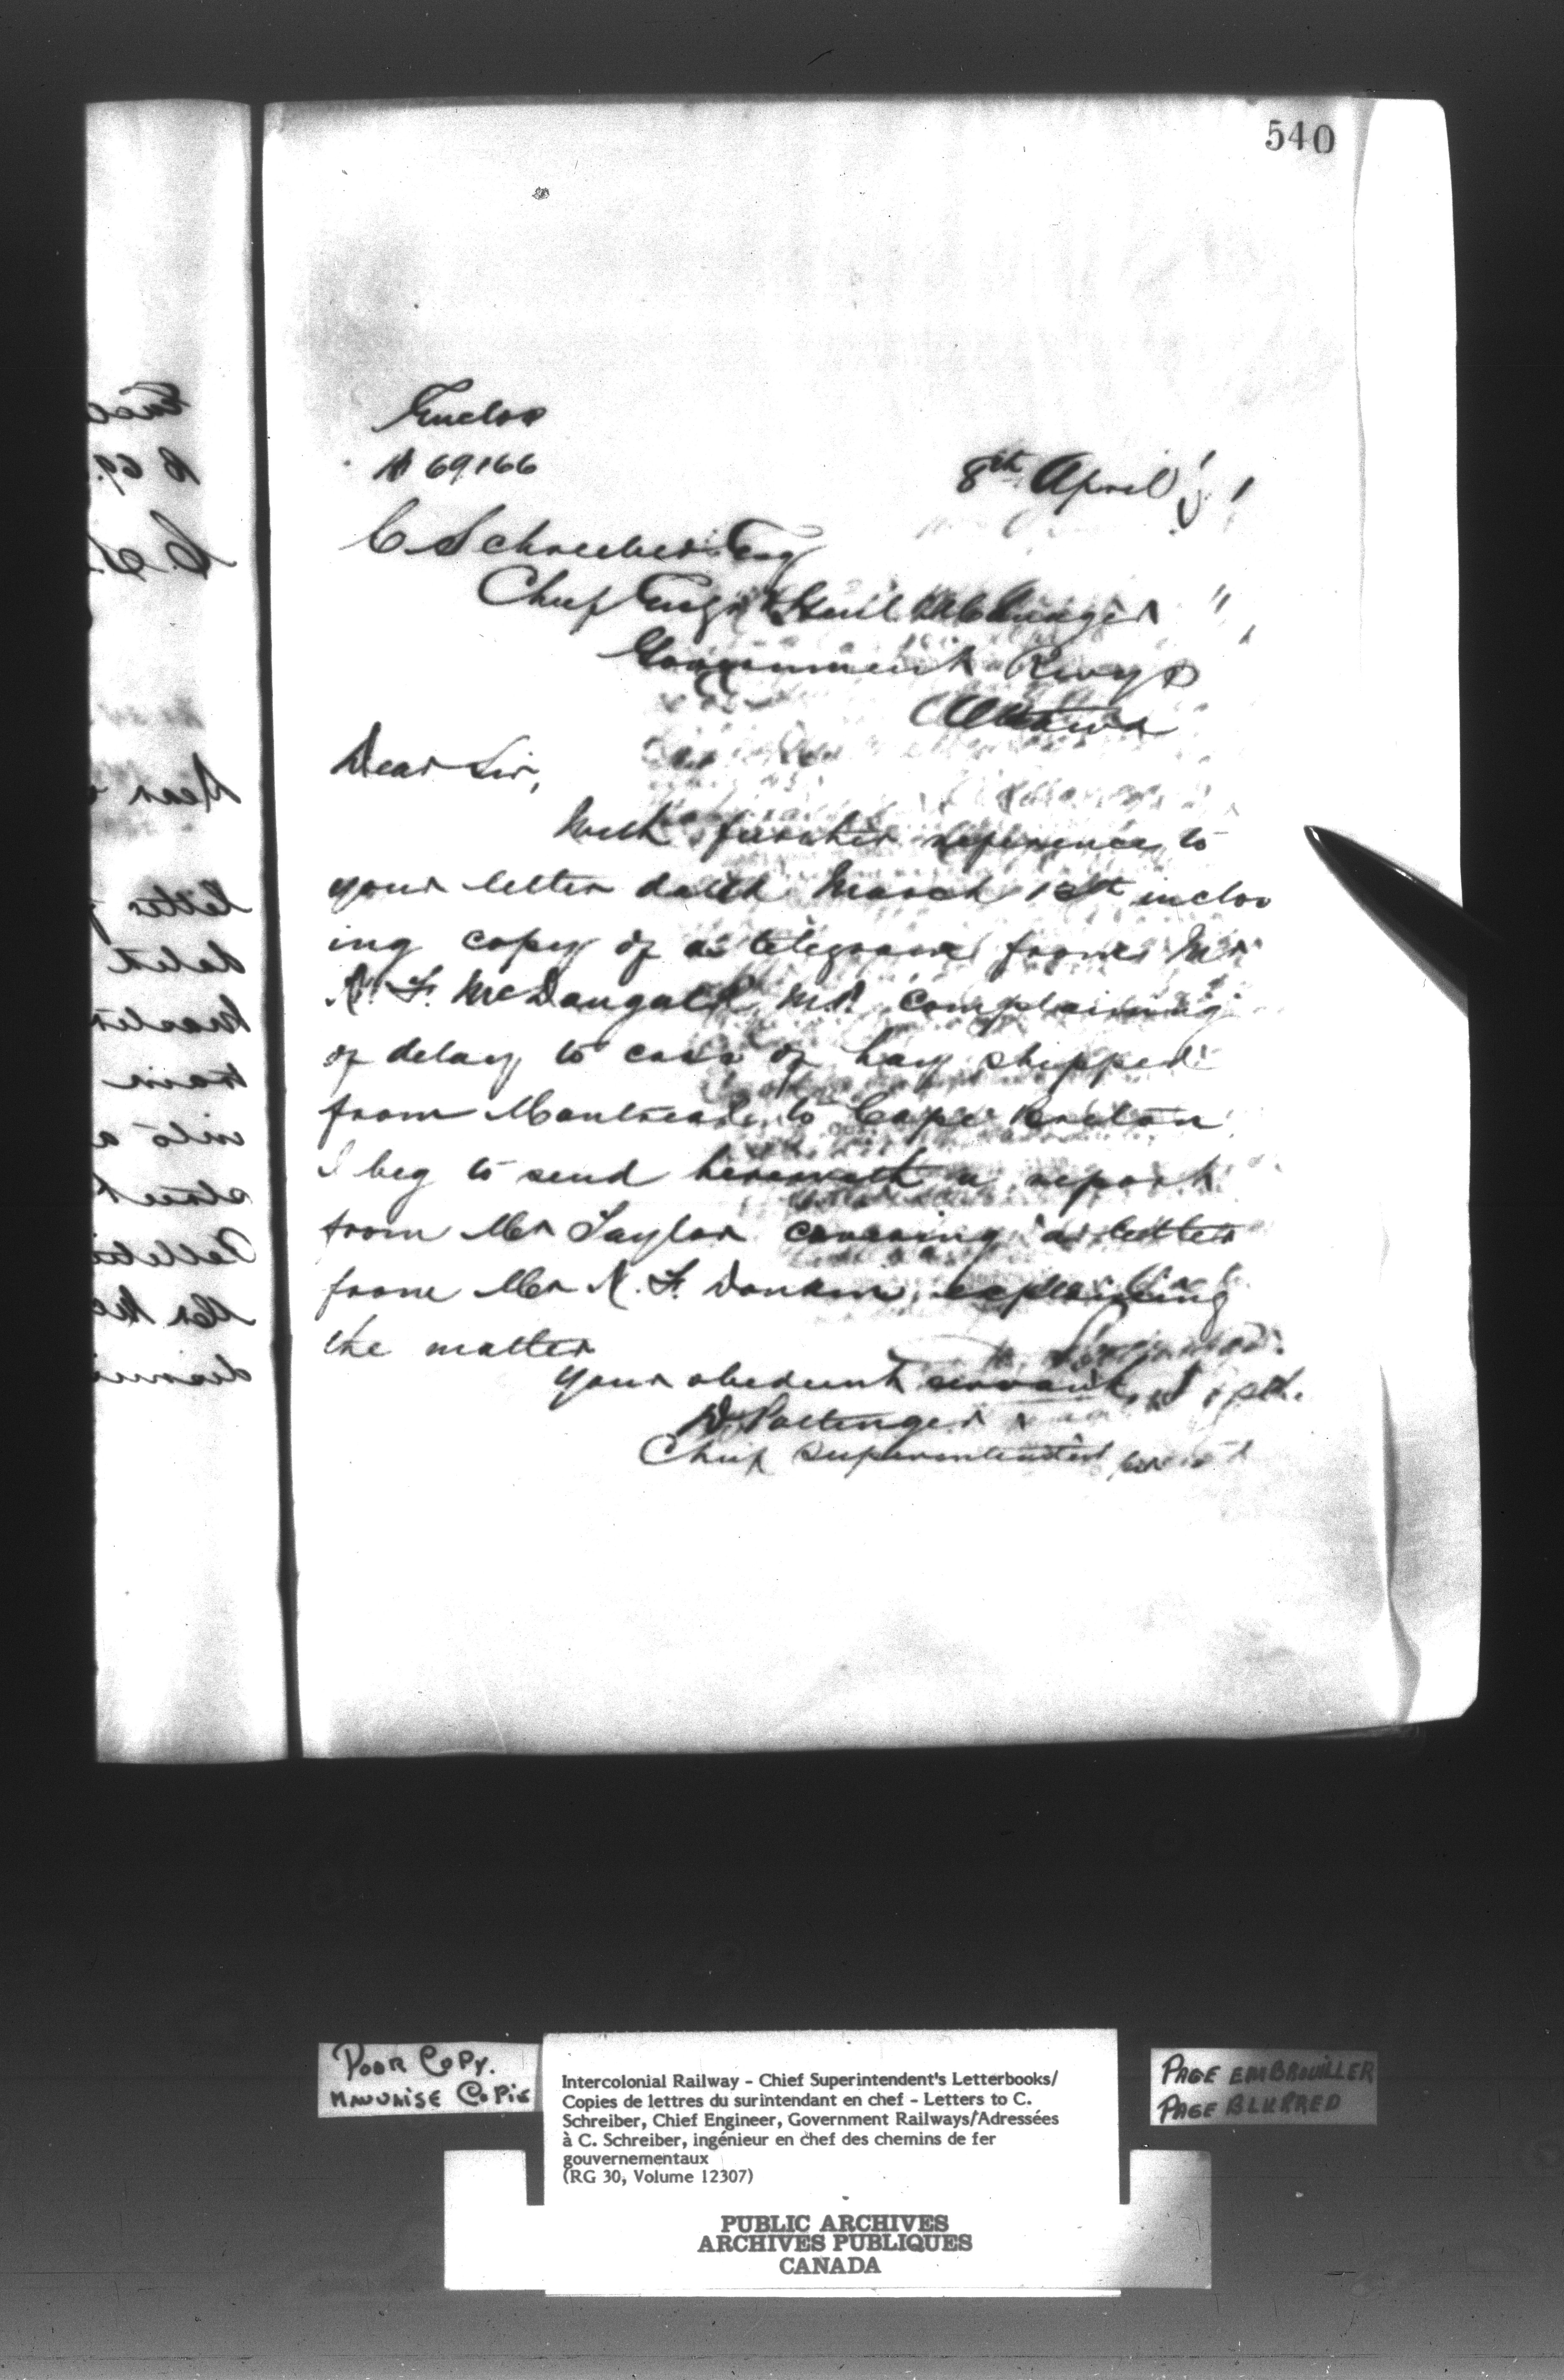 540
Enclos
A 69166
8th April
C Schreiber Esq
Chief Engr & Genl Manager
Government Rwys
Ottawa
Dear Sir,
With further reference to
your letter dated March inclos
ing copy of a telegram from Mr
F. McDougall, M.P. complaining
of delay to cars of hay shipped
from Montreal to Cape Breton
I beg to send herewith a report
from Mr Taylor covering a letter
from Mr N. F. explaining
the matter
Your obedient servant,
D. Pottinger
Chief Superintendent
POOR COPY.
MAUVAISE COPIE
Intercolonial Railway - Chief Superintendent's Letterbooks/
Copies de lettres du surintendant en chef - Letters to C.
Schreiber, Chief Engineer, Government Railways/Adressées
à C. Schreiber, ingénieur en chef des chemins de fer
gouvernementaux
(RG 30, Volume 12307)
PAGE EMBROUILLER
PAGE BLURRED
PUBLIC ARCHIVES
ARCHIVES PUBLIQUES
CANADA